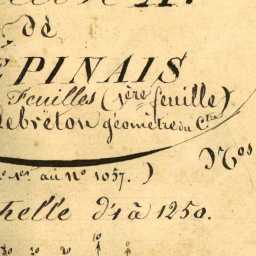 de
EPINAIS
Feuilles (1ère feuille)
Lebreton géomètre du C.tre
1.er au N° 1037.)
Nos
helle d'1 à 1250.